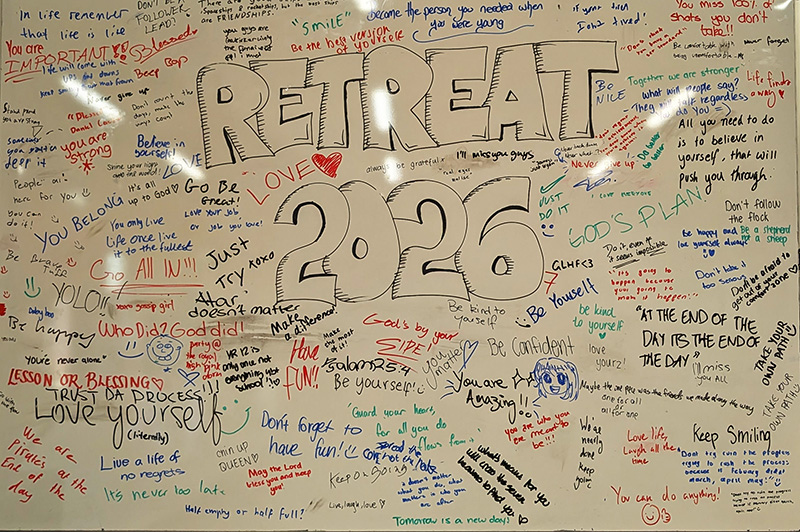 In life remember
that life is life
DON'T BE
FOLLOWER
LEAD!
are FRIENDSHIPS.
"SMILE"
Be the best version
of yourself
Become the person you needed when
you were young
You miss 100% of
shots you don't
take!!
You are
IMPORTANT!
Blessed
Beep Bop
Life will come with
ups & downs
Never give up
RETREAT
2026
BE
NICE
Together we are stronger
what will people say?
They will talk regardless
do You
Life finds
a way
never forget
All you need to do
is to believe in
yourself, that will
push you through.
you are
strong
Believe in
yourself!
LOVE
LOVE
always be grateful
I'll miss you guys
Never give up
Do better
be better
JUST
DO IT
I love retreats
GOD'S PLAN
It's all
up to God
Go Be
Great!
Love your job
or job you love!
People all
here for you
You can
do it!
YOU BELONG
You only Live
Life once live
it to the fullest
Go All IN!!!
Just
Try xoxo
YOLO!!
xoxo gossip girl
Altar
doesn't matter
Make
a difference!
Don't follow
the flock
Be a shepherd
not a sheep
Be happy and
love yourself always
Do it, even if
it seems impossible
GLHF<3
"It's going to
happen because
you're going to
make it happen"
Don't take it
too serious
Don't be afraid to
get out of your
comfort zone
Be Yourself
Be kind to
yourself
be kind
to yourself
"AT THE END OF THE
DAY ITS THE END OF
THE DAY"
TAKE YOUR
OWN PATH
TAKE YOUR
OWN PATH
Be happy
Who Did? God did!
party @
the royal
You're never alone
HR 12 is
only once, not
everything but
school!
Have
FUN!!
Make the
most of it!
God's by your
SIDE!
Psalm 125:4
Be yourself!
you matter
Be Confident
love yourz!
I'll miss
you ALL
LESSON OR BLESSING
TRUST DA PROCESS!
Love yourself
(literally)
You are
Amazing!!
one for all
all for one
you are who you
are meant to
be!!!
Guard your heart,
for all you do
flows from it
Don't forget to
have fun!
We are
Pirates at the
End of the
day
Live a life of
no regrets
It's never too late
chin up
QUEEN
May the Lord
bless you and keep
you!
Keep on Going
Live, laugh, love
Half empty or half full?
it doesn't matter
what you do, what
matters is who you
are after
what's meant for you
will cross the seven
Tomorrow is a new day!
We're
nearly
done
keep
going
Love life,
Laugh all the
time
Keep Smiling
Don't try ruin the progress
trying to rush the process
because it february before
march, april may!
You can do anything!